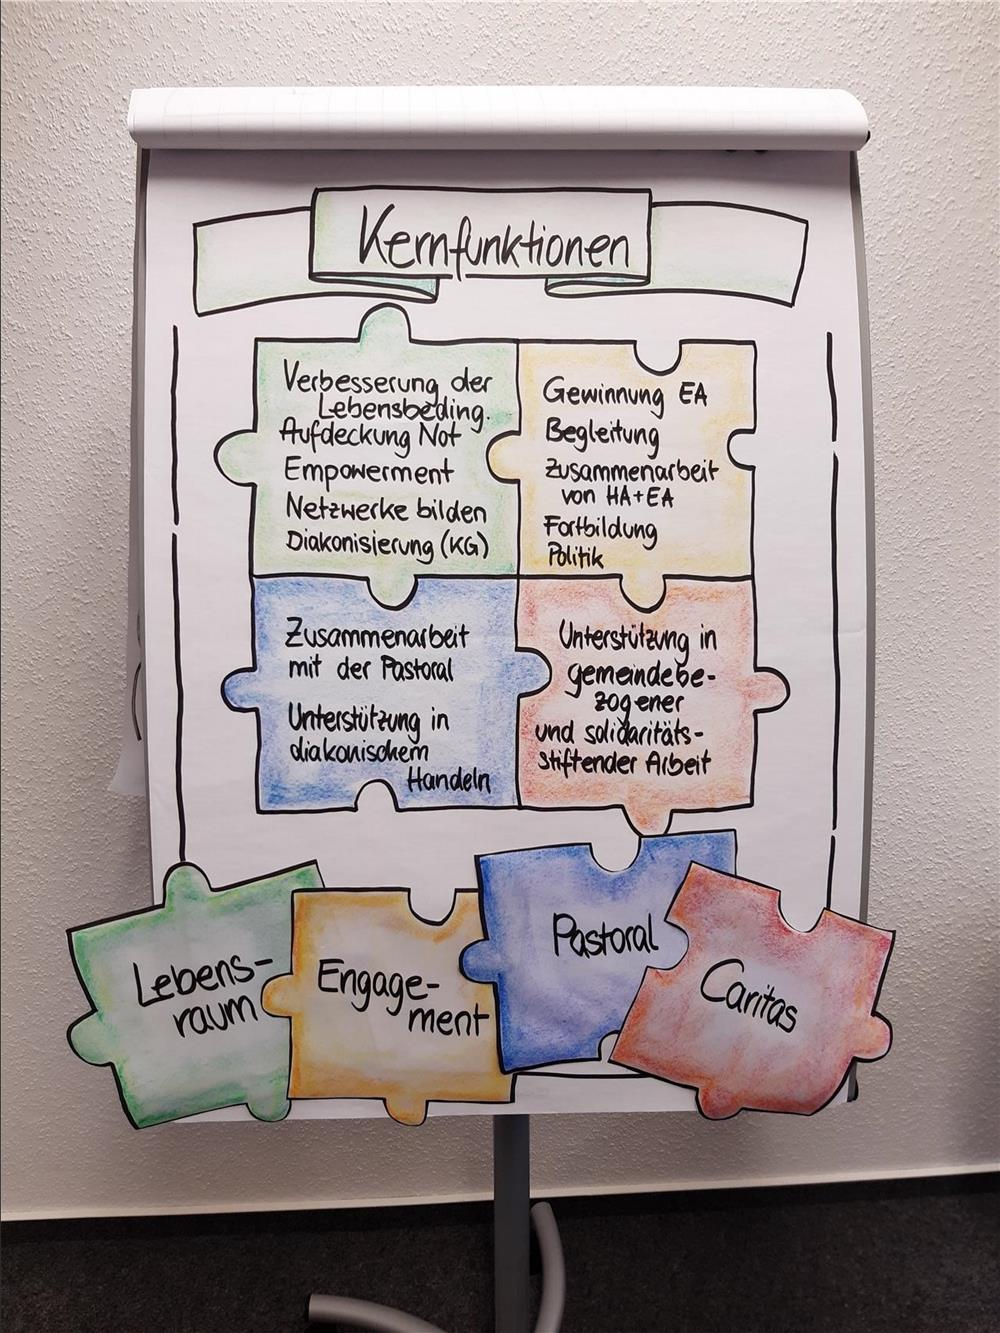 Kernfunktionen
Verbesserung der
Lebensbeding.
Aufdeckung Not
Empowerment
Netzwerke bilden
Diakonisierung (KG)
Gewinnung EA
Begleitung
Zusammenarbeit
von HA+EA
Fortbildung
Politik
Zusammenarbeit
mit der Pastoral
Unterstützung in
diakonischem
Handeln
Unterstützung in
gemeindebe-
zogener
und solidaritäts-
stiftender Arbeit
Lebens-
raum
Engage-
ment
Pastoral
Caritas